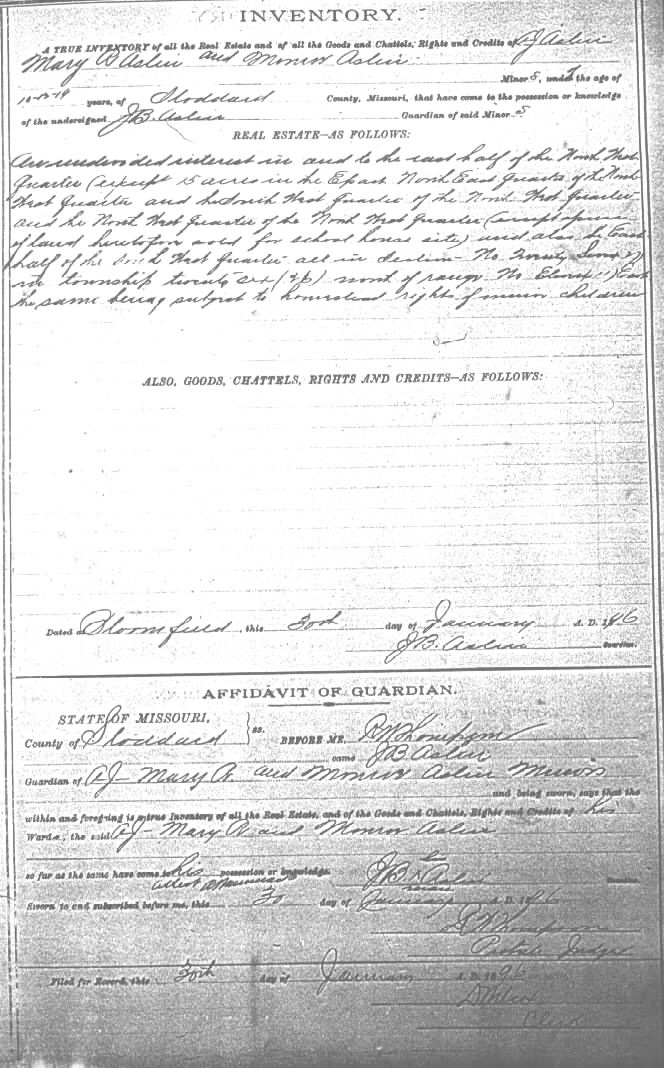 INVENTORY.
A TRUE INVENTORY of all the Real Estate and of all the Goods and Chattels, Rights and Credits of A J Aslin
Mary B Aslin and Monroe Aslin
Minor s, under the age of
years, of Stoddard County, Missouri, that have come to the possession or knowledge
of the undersigned J.B. Aslin Guardian of said Minor s
REAL ESTATE—AS FOLLOWS:
An undivided interest in and to the east half of the North West
Quarter (except 15 acres in the East North East Quarter of the North
West Quarter and the South West Quarter of the North West Quarter
and the North West Quarter of the North West Quarter (except a piece
of land heretofore sold for school house site) and also the East
half of the South West Quarter all in Section No Twenty Seven 27
in township twenty six (26) north of range No Eleven 11, East
the same being subject to homestead rights of minor children
ALSO, GOODS, CHATTELS, RIGHTS AND CREDITS—AS FOLLOWS:
Dated at Bloomfield, this 30th day of January A. D. 1896
J.B. Aslin Guardian.
AFFIDAVIT OF GUARDIAN.
STATE OF MISSOURI,
County of Stoddard } ss. BEFORE ME, R W Thompson
came J B Aslin
Guardian of A J- Mary B and Monroe Aslin Minors
and being sworn, says that the
within and foregoing is a true Inventory of all the Real Estate, and of the Goods and Chattels, Rights and Credits of his
Wards, the said A J- Mary B and Monroe Aslin
so far as the same have come to his possession or knowledge. J B Aslin
Sworn to and subscribed before me, this 30 day of January A. D. 1896
R W Thompson
Probate Judge
Filed for Record, this 30th day of January A. D. 1896
Clerk